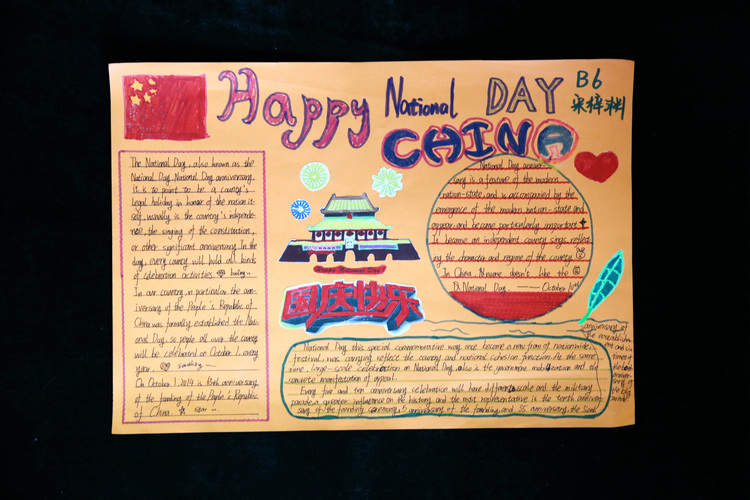 Happy National DAY
CHINA
B6
The National Day, also known as the
National Day, National Day anniversary,
it is to point to be a country's
legal holiday in honor of the nation it-
self, usually is the country's independe-
nce, the singing of the constitution,
or other significant anniversary. In the
day, every country will hold all kinds
of celebration activities.
In our country, in particular the ann-
iversary of the People's Republic of
China was formally established the Nati-
onal Day, so people all over the country
will be celebrated on October 1, every
year. sunday
On October 1, 2019 is 70th anniversary
of the founding of the People's Republic
of China. star
Happy National Day
国庆快乐
National Day anniver-
sary is a feature of the modern
nation-state, and is accompanied by the
emergence of the modern nation-state and
appear, and became particularly important.
It became an independent country sings, reflect
ing the character and regime of the country.
In China, Nowone doesn't like the
National Day. October 10th
National Day this special commemorative way once become a new from of nationwide,
festival, was carrying reflect the country and national cohesion function. At the same
time, large-scale celebration on National Day, also is the government mobilization and the
concrete manifestation of appeal.
Every five and ten anniversary celebration will have different scale and the military
parade, a greater influence on the history and the most representative is the tenth anniver-
sary of the founding ceremony, 5 anniversary of the founding and 35 anniversary, the 50th
anniversary of
the establishm
ent and